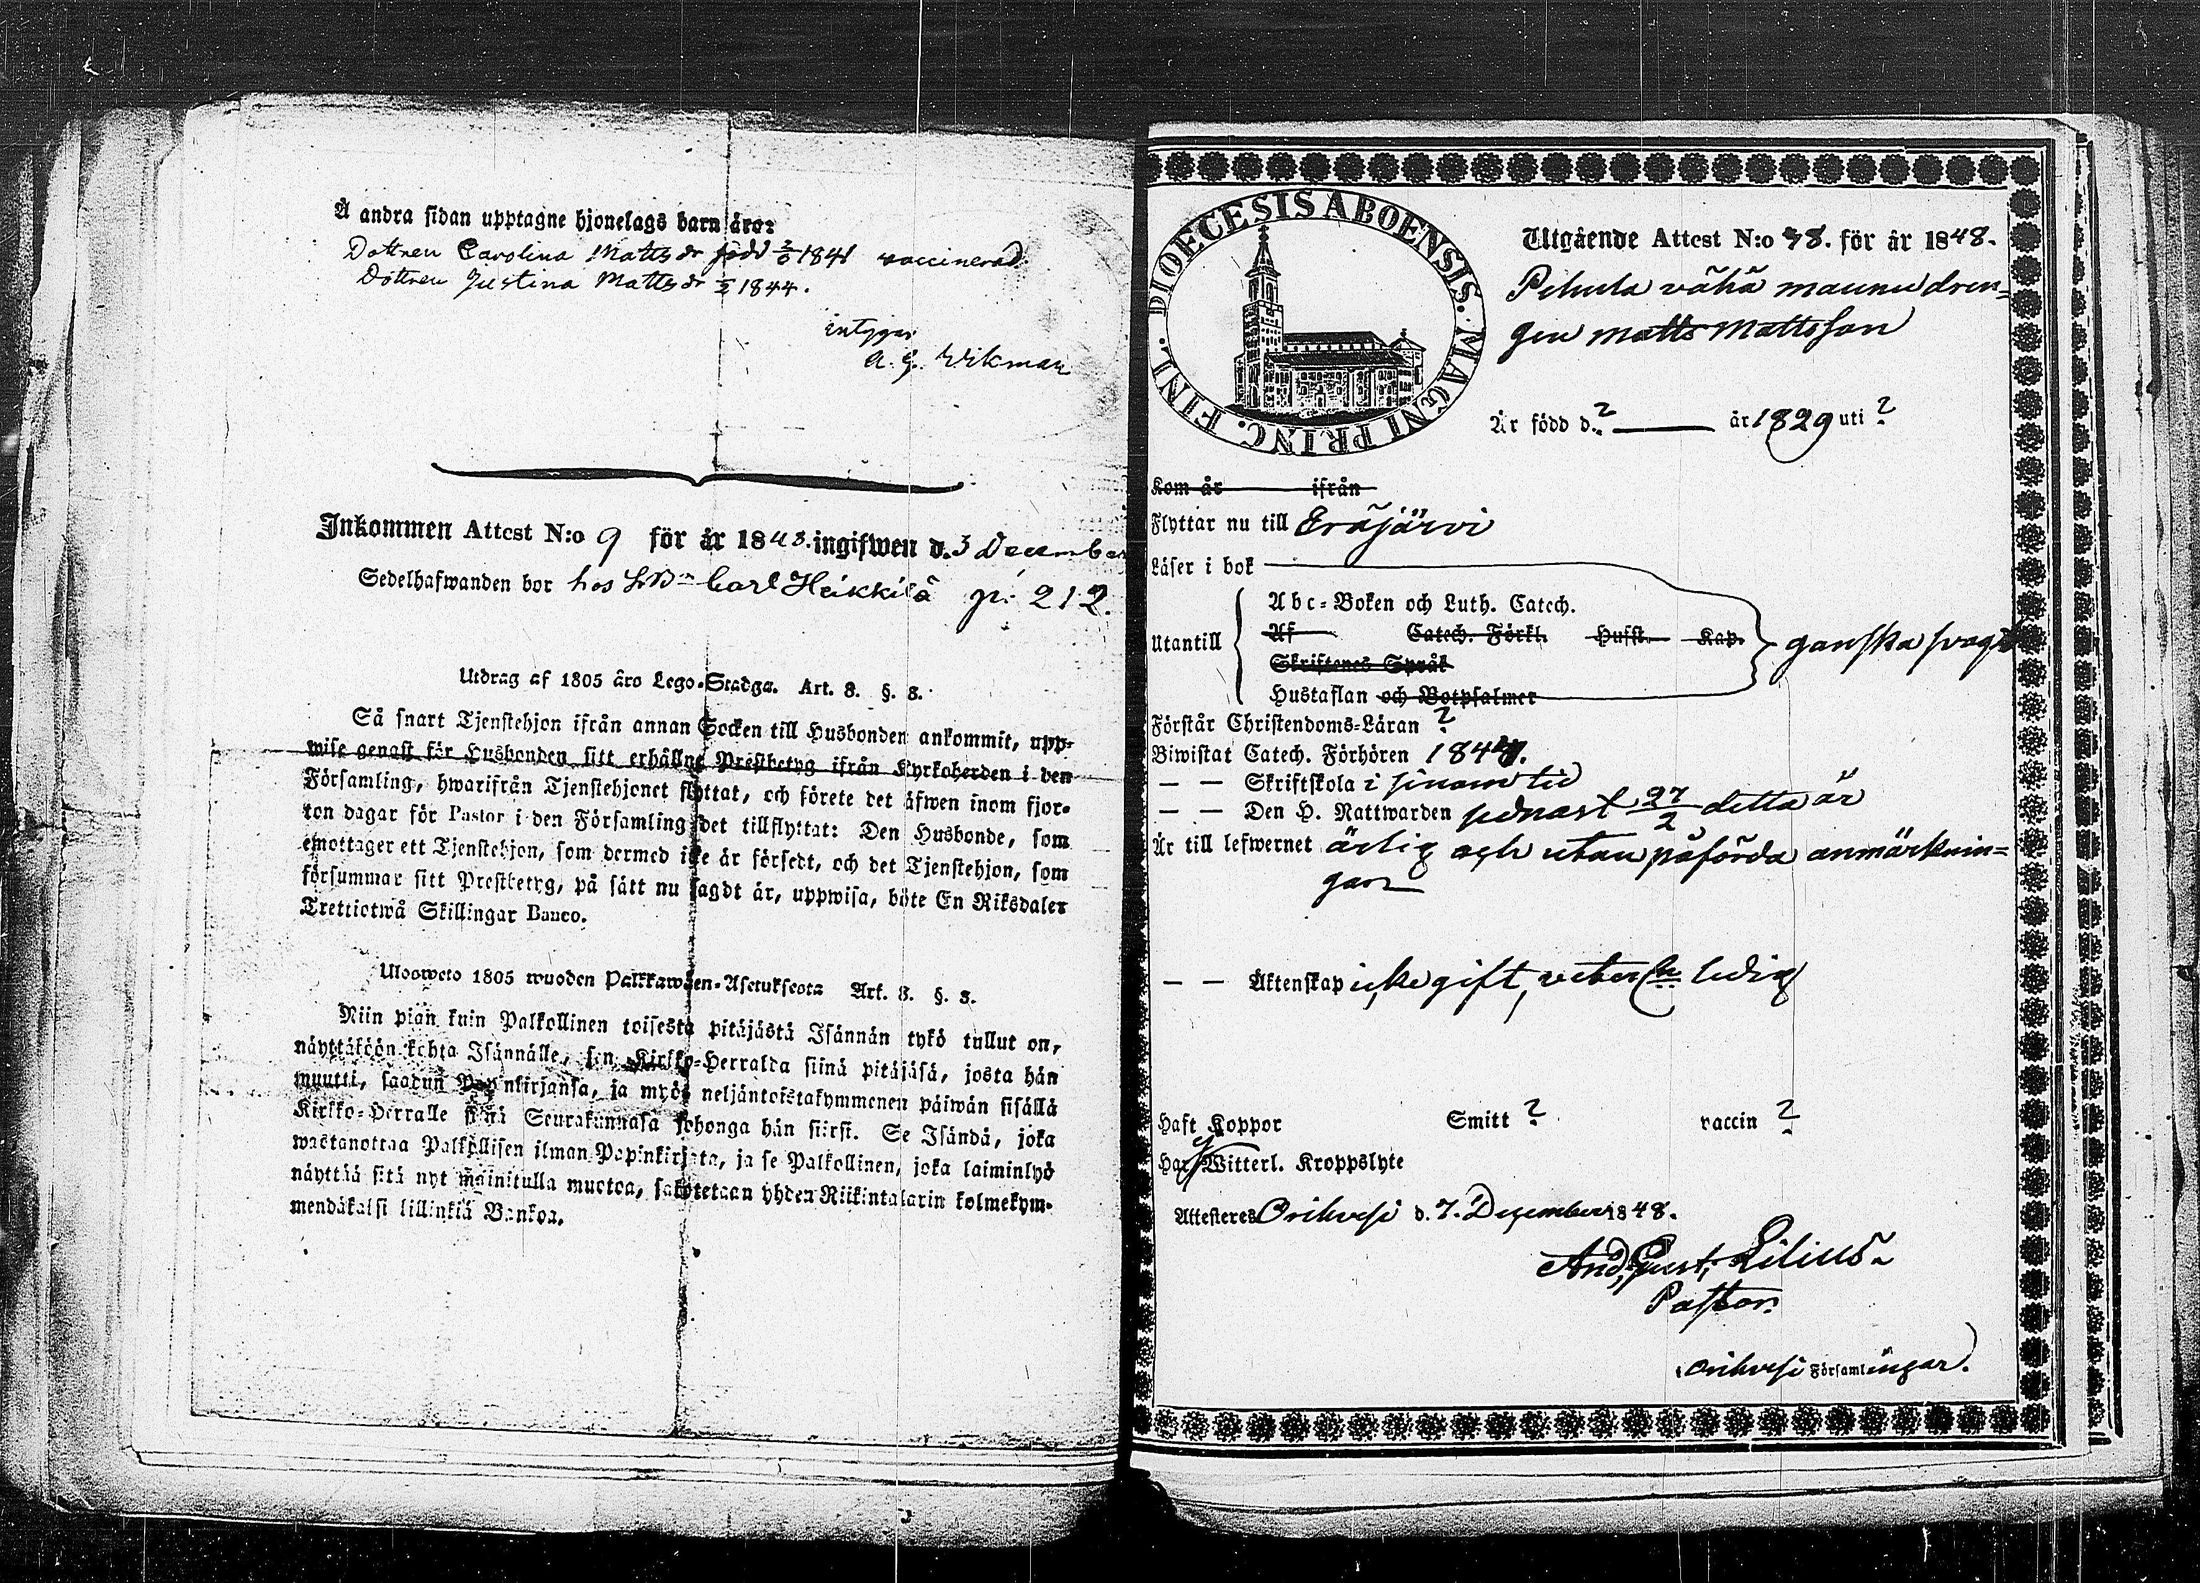 Å andra sidan upptagne hjonelags barn äro:
Dottren Carolina Mattsdr född 1841 vaccinerad
Dottren Justina Mattsdr 1844.
intygar
A. G. Wikman
Inkommen Attest N:o 9 för år 1848. ingifwen d. 3 December
Sedelhafwanden bor hos Carl Heikkilä p: 212.
Utdrag af 1805 åro Lego-Stadga. Art. 8. §. 8.
Så snart Tjenstehjon ifrån annan Socken till Husbonden ankommit, upp-
wise genast för Husbonden sitt erhållne Prestbetyg ifrån Kyrkoherden i den
Församling, hwarifrån Tjenstehjonet flyttat, och förete det äfwen inom fjor-
ton dagar för Pastor i den Församling det tillflyttat: Den Husbonde, som
emottager ett Tjenstehjon, som dermed icke är försedt, och det Tjenstehjon, som
försummar sitt Prestbetyg, på sätt nu sagdt är, uppwisa, böte En Riksdaler
Trettiotwå Skillingar Banco.
Ulosweto 1805 wuoden Palkkawäen-Asetuksesta Art. 8. §. 8.
Niin pian kuin Palkollinen toisesta pitäjästä Isännän tykö tullut on,
näyttäköön kohta Isännälle, sen Kirkko-Herralda siinä pitäjäsä, josta hän
muutti, saadun Papinkirjansa, ja myös neljäntoistakymmenen päiwän sisällä
Kirkko-Herralle siinä Seurakunnasa johonga hän siirsi. Se Isändä, joka
wastanottaa Palkollisen ilman Papinkirjata, ja se Palkollinen, joka laiminlyö
näyttää sitä nyt mainitulla muotoa, sakotetaan yhden Riikintalarin kolmekym-
mendäkaksi killinkiä Bankoa.
DIOECESIS ABOENSIS. MAGNI PRINC. FINL.
Utgående Attest N:o 78. för år 1848.
Pihula vähä maunu dren-
gen Matts Mattsson
Är född d. ? år 1829 uti ?
Kom år ifrån
Flyttar nu till Eräjärvi
Läser i bok
Abc-Boken och Luth. Catech.
Utantill Af Catech. Förkl. Husst. Kap. ganska svagt
Skriftenes Språk
Hustaflan och Botpsalmer
Förstår Christendoms-Läran ?
Biwistat Catech. Förhören 1847.
— — Skriftskola i sinom tid
— — Den H. Nattwarden senast 27/2 detta år
Är till lefwernet ärlig och utan påförda anmärknin-
gar
— — Äktenskap icke gift, ledig
Haft Koppor Smitt ? vaccin ?
Har Witterl. Kroppslyte
Attesteres Orihvesi d. 7. December 1848.
And. Gust. Lilius
Pastor.
Orihvesi Församlingar.